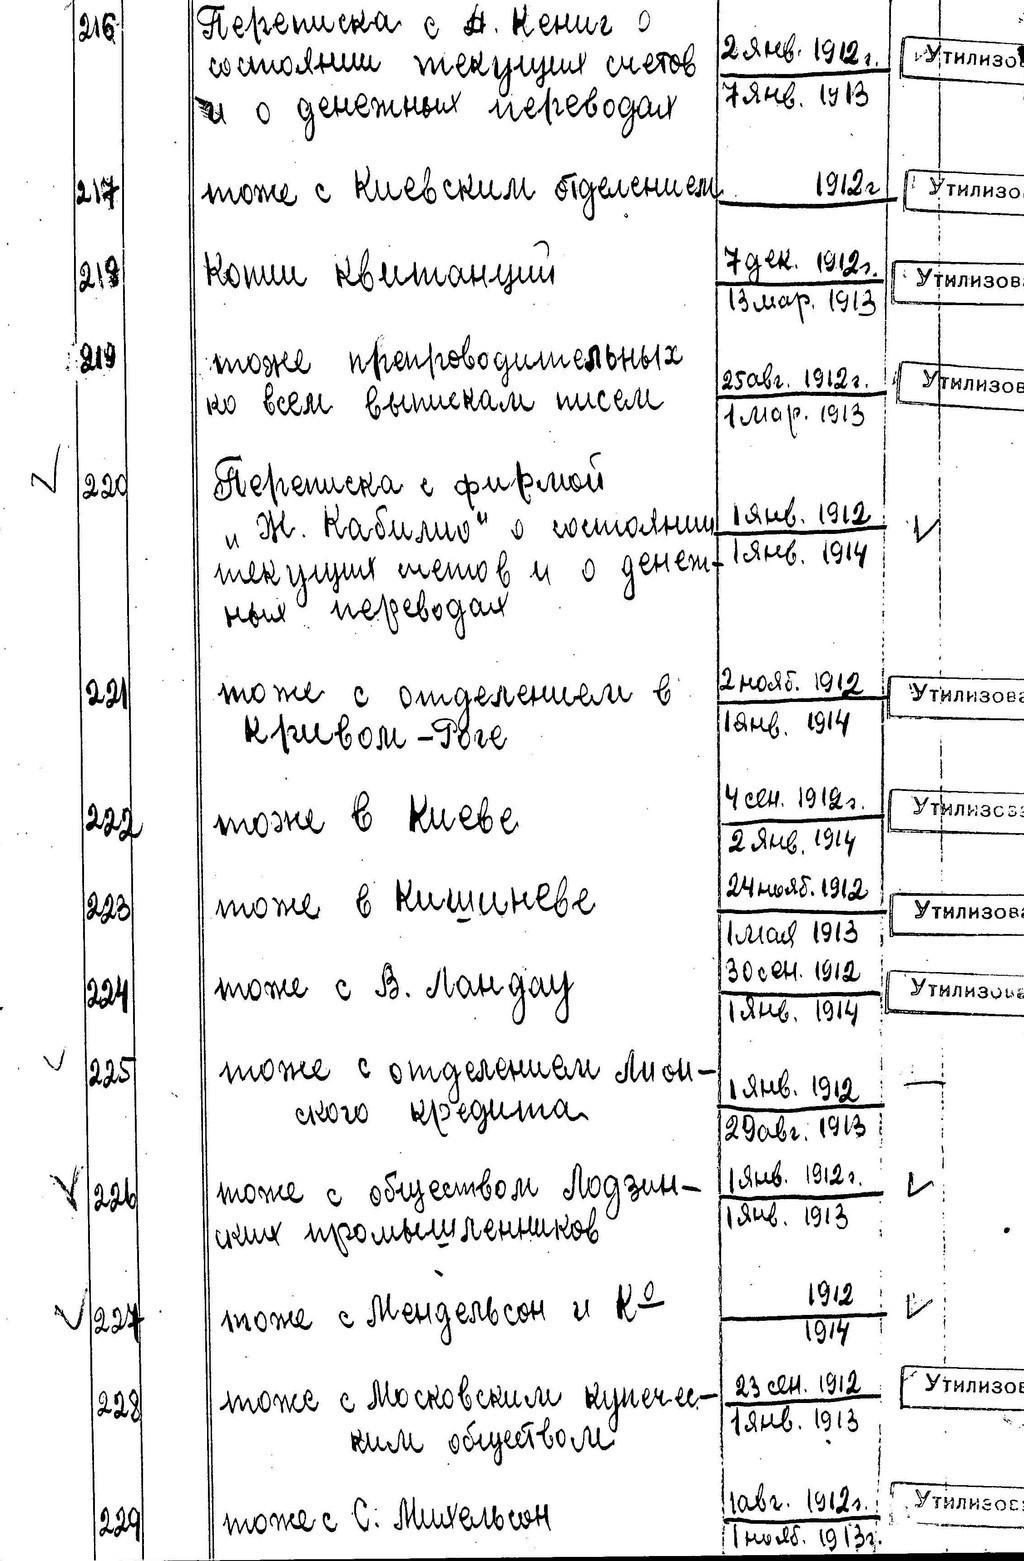 216 Переписка с А. Кениг о
состоянии текущих счетов 2 янв. 1912 г. Утилизо
и о денежных переводах 7 янв. 1913
217 тоже с Киевским отделением 1912 г Утилизо
218 Копии квитанций 7 дек. 1912 г. Утилизова
13 мар. 1913
219 тоже препроводительных
ко всем выпискам писем 25 авг. 1912 г. Утилизов
1 мар. 1913
220 Переписка с фирмой
„Ж. Кабилио" о состоянии 1 янв. 1912
текущих счетов и о денеж- 1 янв. 1914
ных переводах
221 тоже с отделением в 2 нояб. 1912 Утилизова
Кривом-Роге 1 янв. 1914
222 тоже в Киеве 4 сен. 1912 г. Утилизова
2 янв. 1914
223 тоже в Кишиневе 24 нояб. 1912 Утилизова
1 мая 1913
224 тоже с В. Ландау 30 сен. 1912 Утилизова
1 янв. 1914
225 тоже с отделением Лион- 1 янв. 1912
ского кредита 29 авг. 1913
226 тоже с обществом Лодзин- 1 янв. 1912 г.
ских промышленников 1 янв. 1913
227 тоже с Мендельсон и Ко 1912
1914
228 тоже с Московским купечес- 23 сен. 1912 Утилизов
ким обществом 1 янв. 1913
229 тоже с С. Михельсон 1 авг. 1912 г. Утилизов
1 нояб. 1913 г.